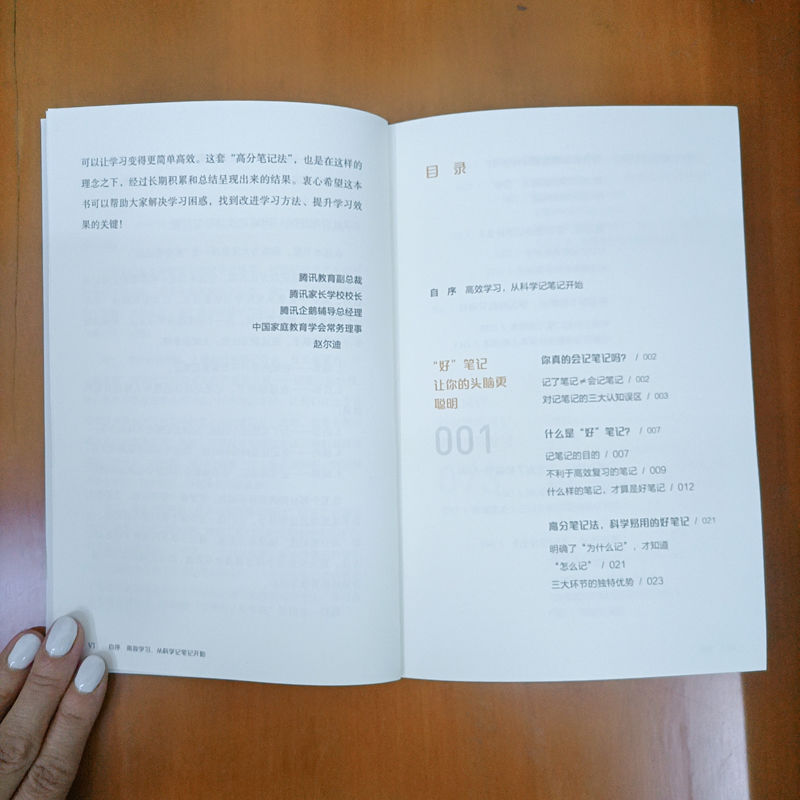 可以让学习变得更简单高效。这套“高分笔记法”，也是在这样的
理念之下，经过长期积累和总结呈现出来的结果。衷心希望这本
书可以帮助大家解决学习困惑，找到改进学习方法、提升学习效
果的关键！
腾讯教育副总裁
腾讯家长学校校长
腾讯企鹅辅导总经理
中国家庭教育学会常务理事
赵尔迪
VI 自序 高效学习，从科学记笔记开始
目 录
自 序 高效学习，从科学记笔记开始
“好”笔记
让你的头脑更
聪明
001
你真的会记笔记吗？ / 002
记了笔记≠会记笔记 / 002
对记笔记的三大认知误区 / 003
什么是“好”笔记？ / 007
记笔记的目的 / 007
不利于高效复习的笔记 / 009
什么样的笔记，才算是好笔记 / 012
高分笔记法，科学易用的好笔记 / 021
明确了“为什么记”，才知道
“怎么记” / 021
三大环节的独特优势 / 023